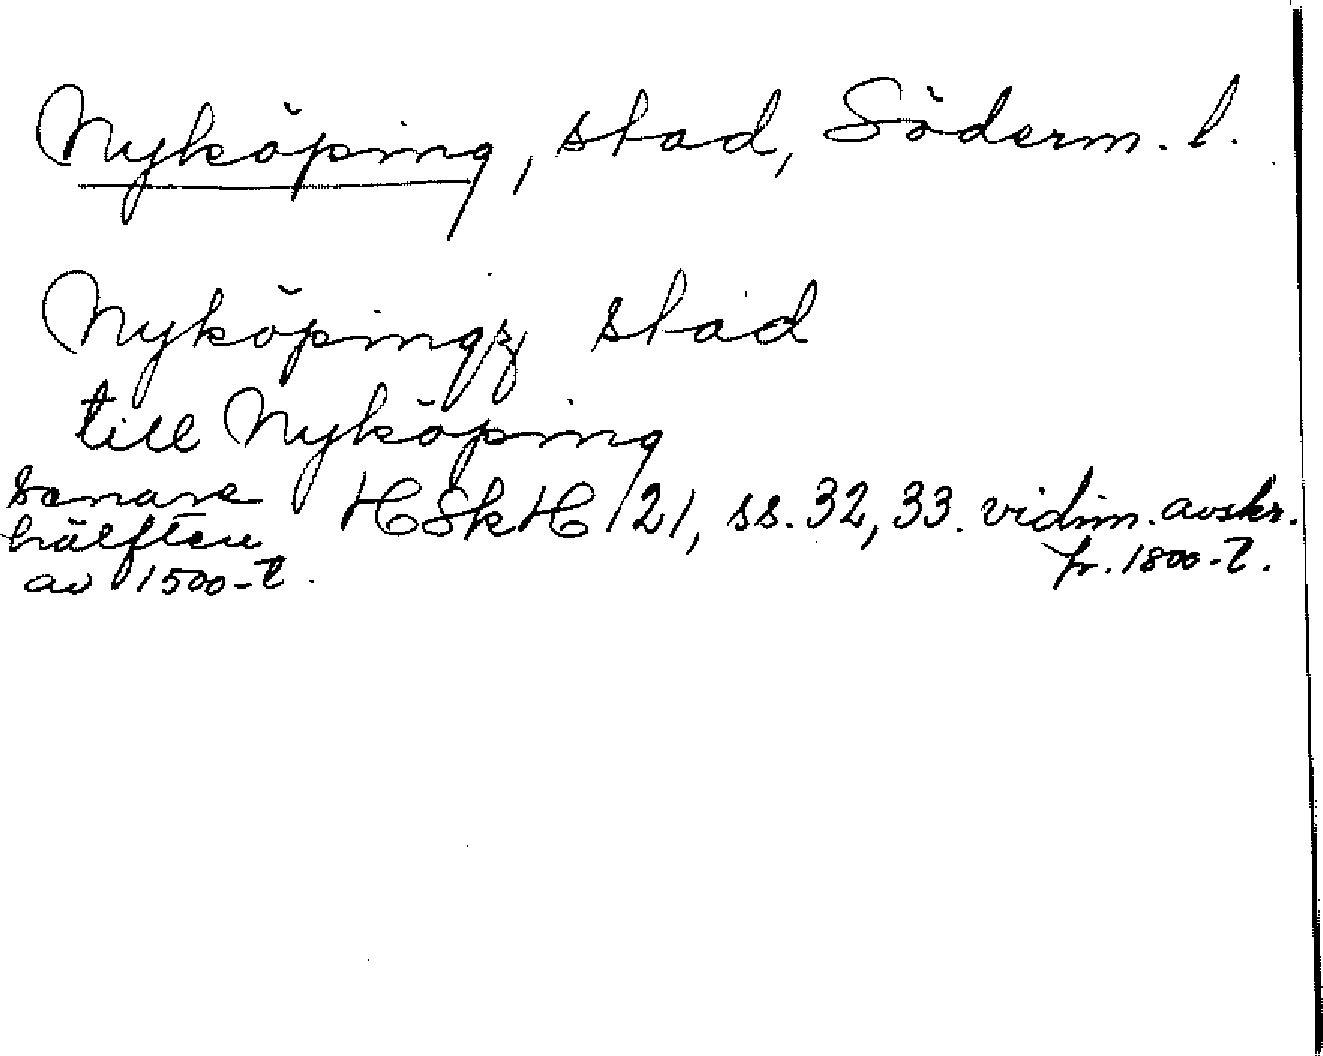 Nyköping, stad, Söderm. l.
Nyköpingz stad
till Nyköping
senare HSkH 21, ss. 32, 33. vidim. avskr.
hälften fr. 1800-t.
av 1500-t.